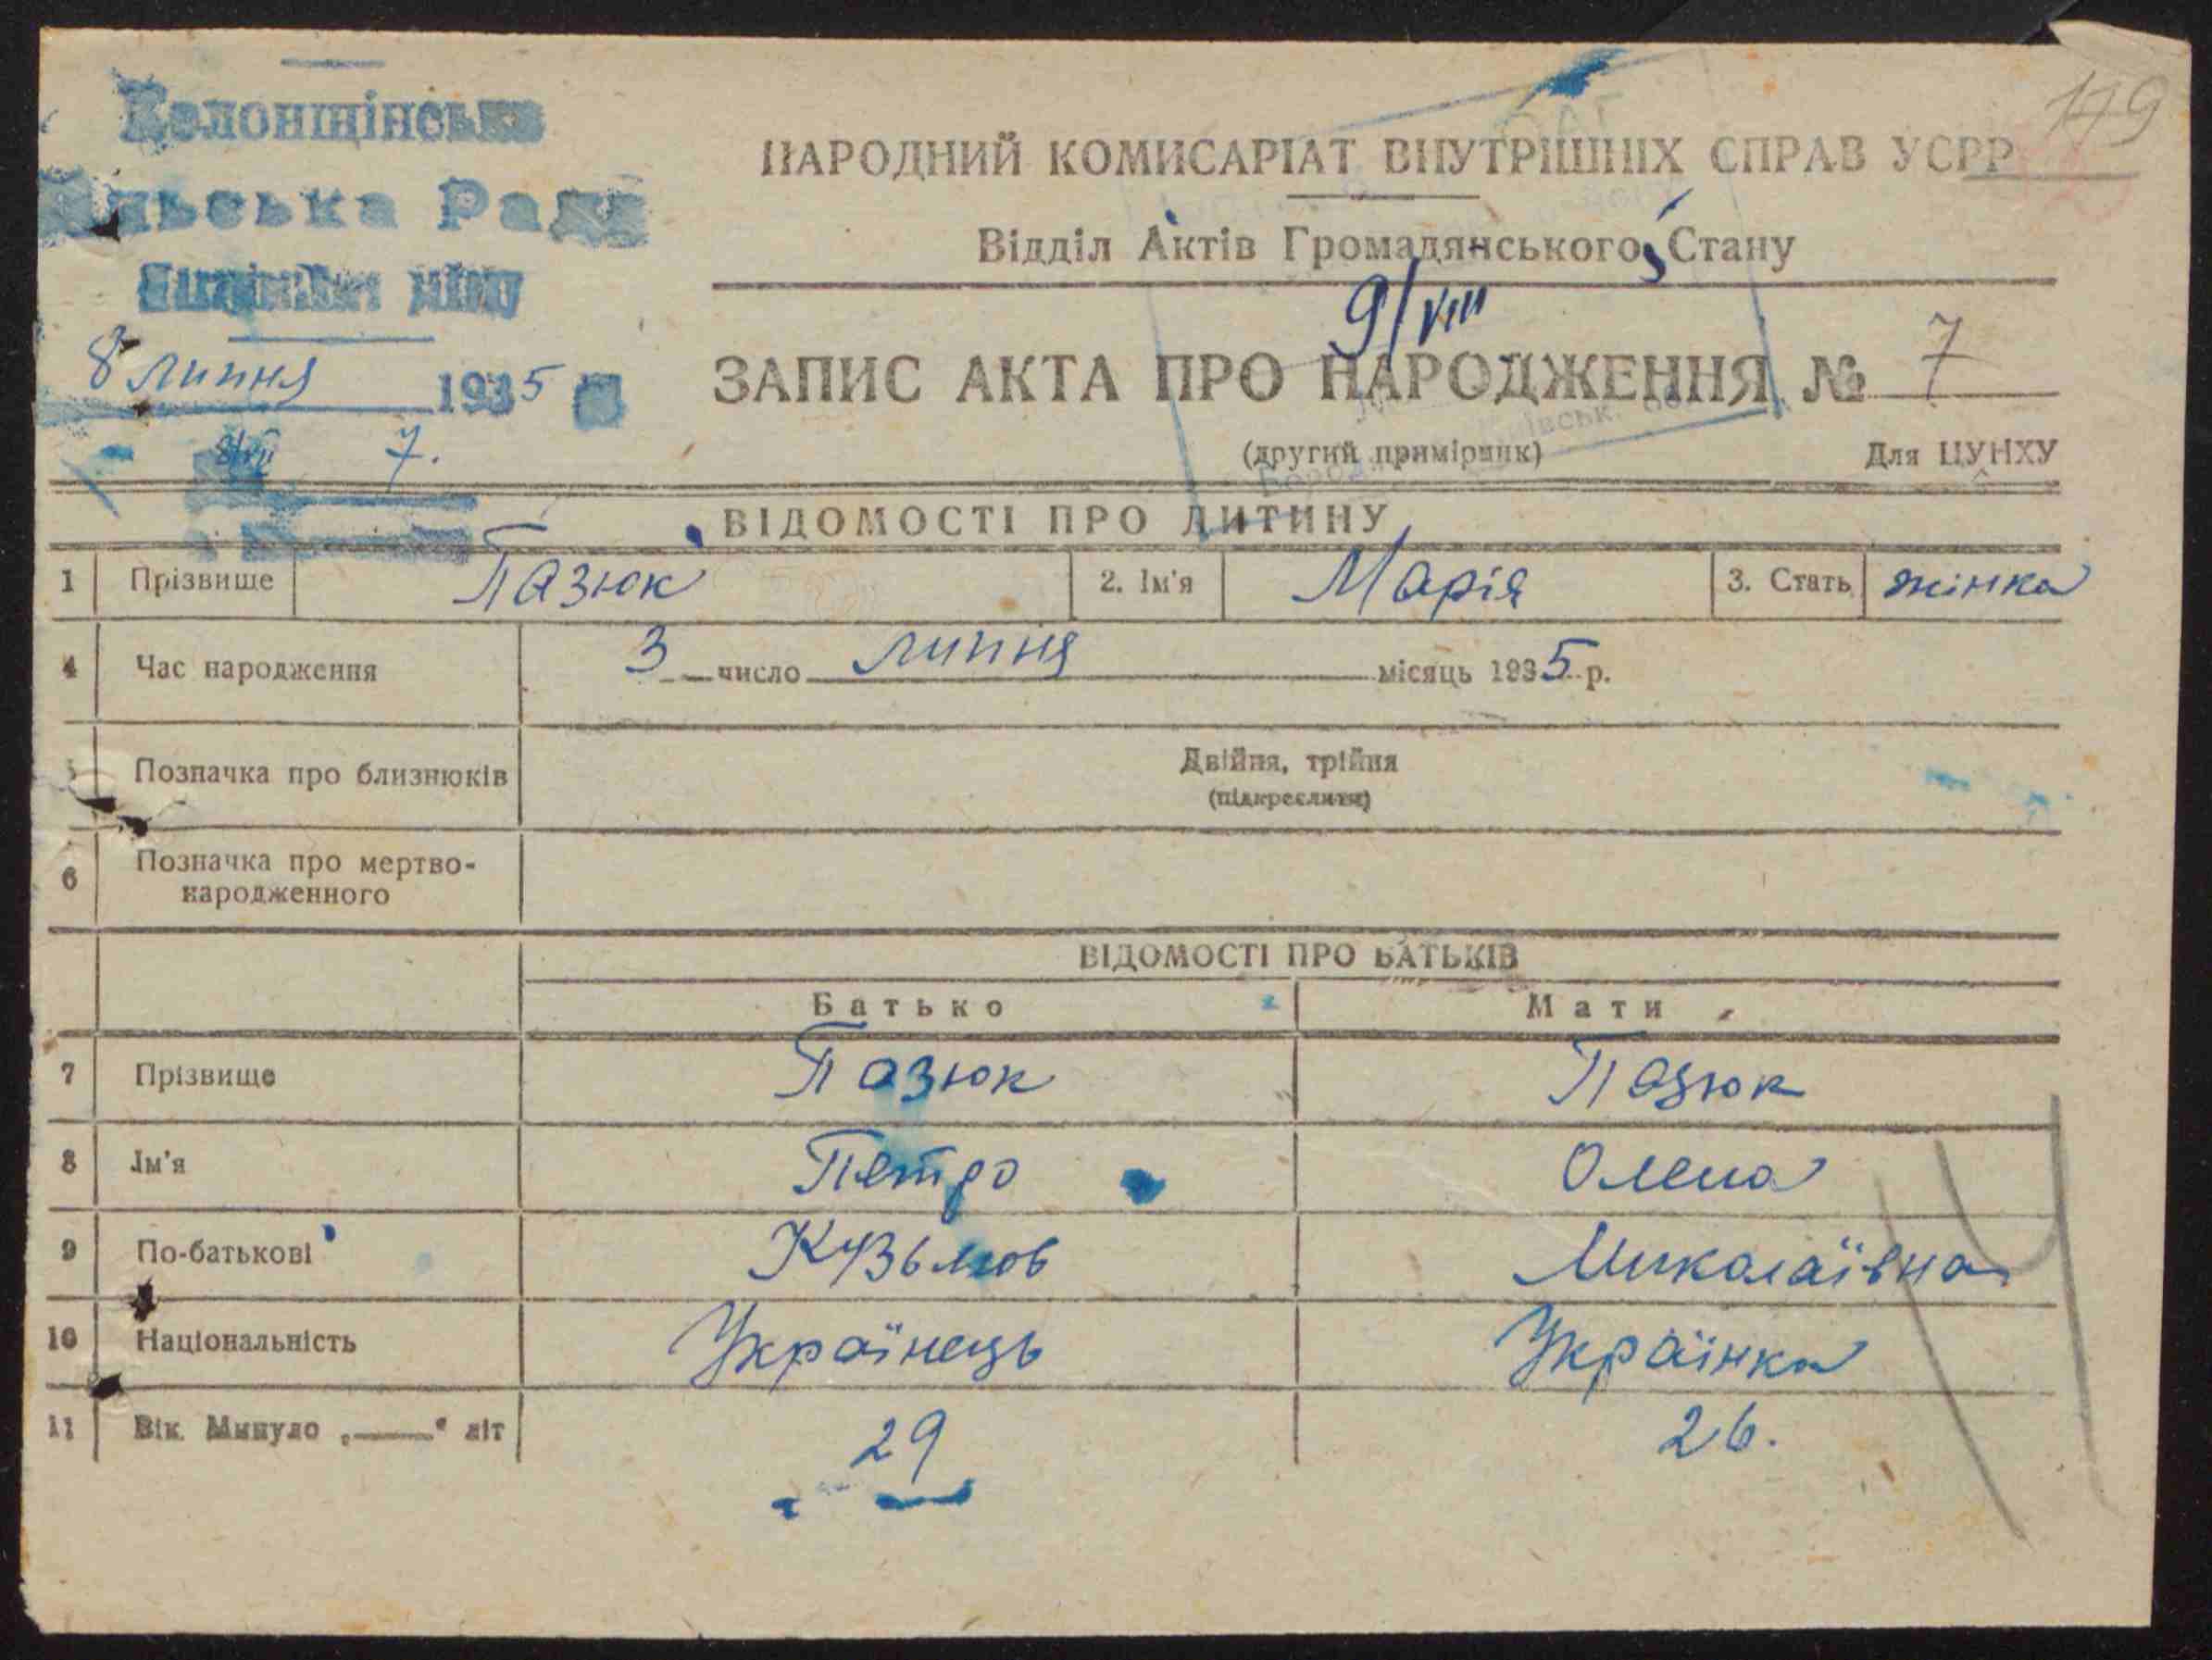 179
Рада
НАРОДНИЙ КОМИСАРІАТ ВНУТРІШНІХ СПРАВ УСРР
Відділ Актів Громадянського Стану
9/VIII
8 липня 1935
ЗАПИС АКТА ПРО НАРОДЖЕННЯ № 7
7.
(другий примірник) Для ЦУНХУ
ВІДОМОСТІ ПРО ДИТИНУ
1 Прізвище Пазюк 2. Ім'я Марія 3. Стать жінка
4 Час народження 3 число липня місяць 1935 р.
5 Позначка про близнюків Двійня, трійня
(підкреслити)
6 Позначка про мертво-
народженного
ВІДОМОСТІ ПРО БАТЬКІВ
Батько Мати
7 Прізвище Пазюк Пазюк
8 Ім'я Петро Олена
9 По-батькові Кузьмов Миколаївна
10 Національність Українець Українка
11 Вік. Минуло „—“ літ 29 26.